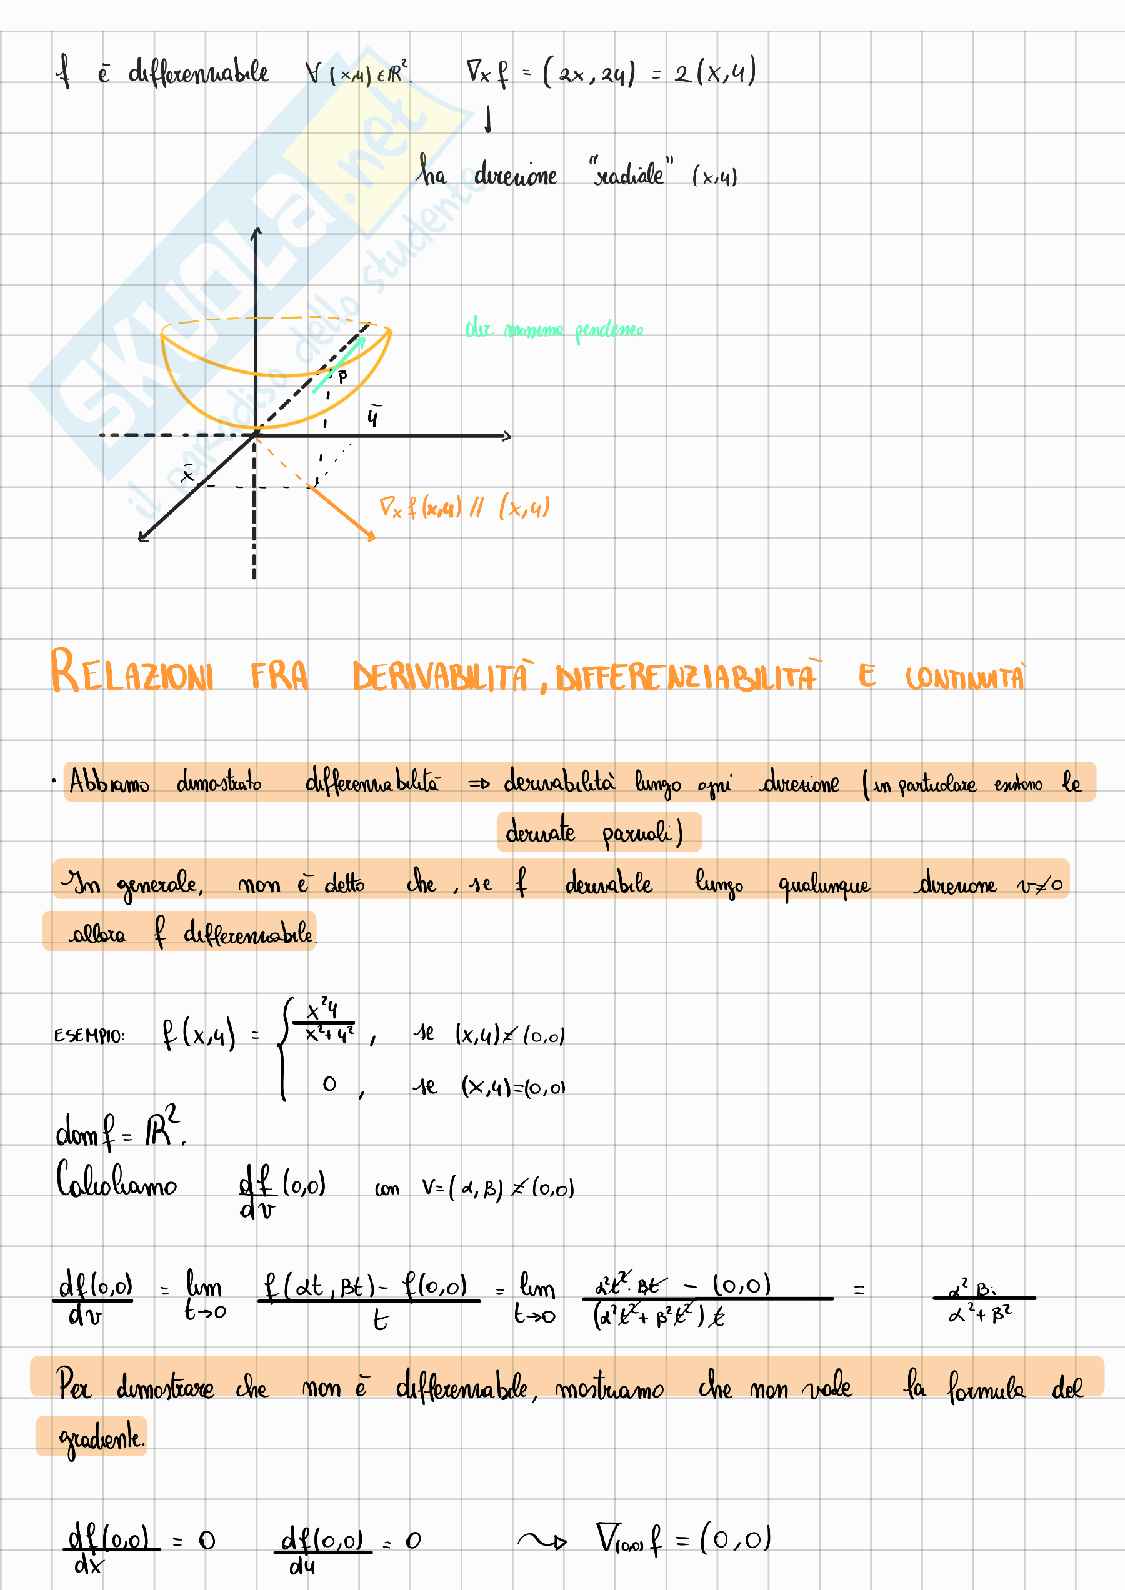 f è differenziabile ∀(x,y)∈ℝ² ∇ₓf = (2x,2y) = 2(x,y)
↓
ha direzione "radiale" (x,y)
SKUOLA.net
il paradiso dello studente
dir. massima pendenza
p̄
ȳ
x̄
∇ₓf(x,y) // (x,y)
RELAZIONI FRA DERIVABILITÀ, DIFFERENZIABILITÀ E CONTINUITÀ
· Abbiamo dimostrato differenziabilità ⇒ derivabilità lungo ogni direzione (in particolare esistono le
derivate parziali)
In generale, non è detto che, se f derivabile lungo qualunque direzione v≠0
allora f differenziabile.
ESEMPIO: f(x,y) = { x²y / x²+y² , se (x,y)≠(0,0)
0 , se (x,y)=(0,0)
dom f = ℝ².
Calcoliamo df/dv (0,0) con v=(α,β)≠(0,0)
df(0,0)/dv = lim t→0 f(αt,βt) - f(0,0) / t = lim t→0 α²t²·βt - (0,0) / (α²t²+β²t²)t = α²β. / α²+β²
Per dimostrare che non è differenziabile, mostriamo che non vale la formula del
gradiente.
df(0,0)/dx = 0 df(0,0)/dy = 0 ⤳ ∇(0,0)f = (0,0)